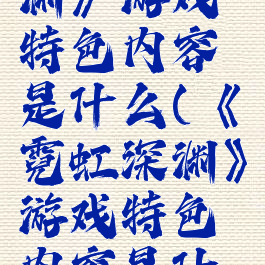 渊》游戏
特色内容
是什么(《
霓虹深渊》
游戏特色
内容是什